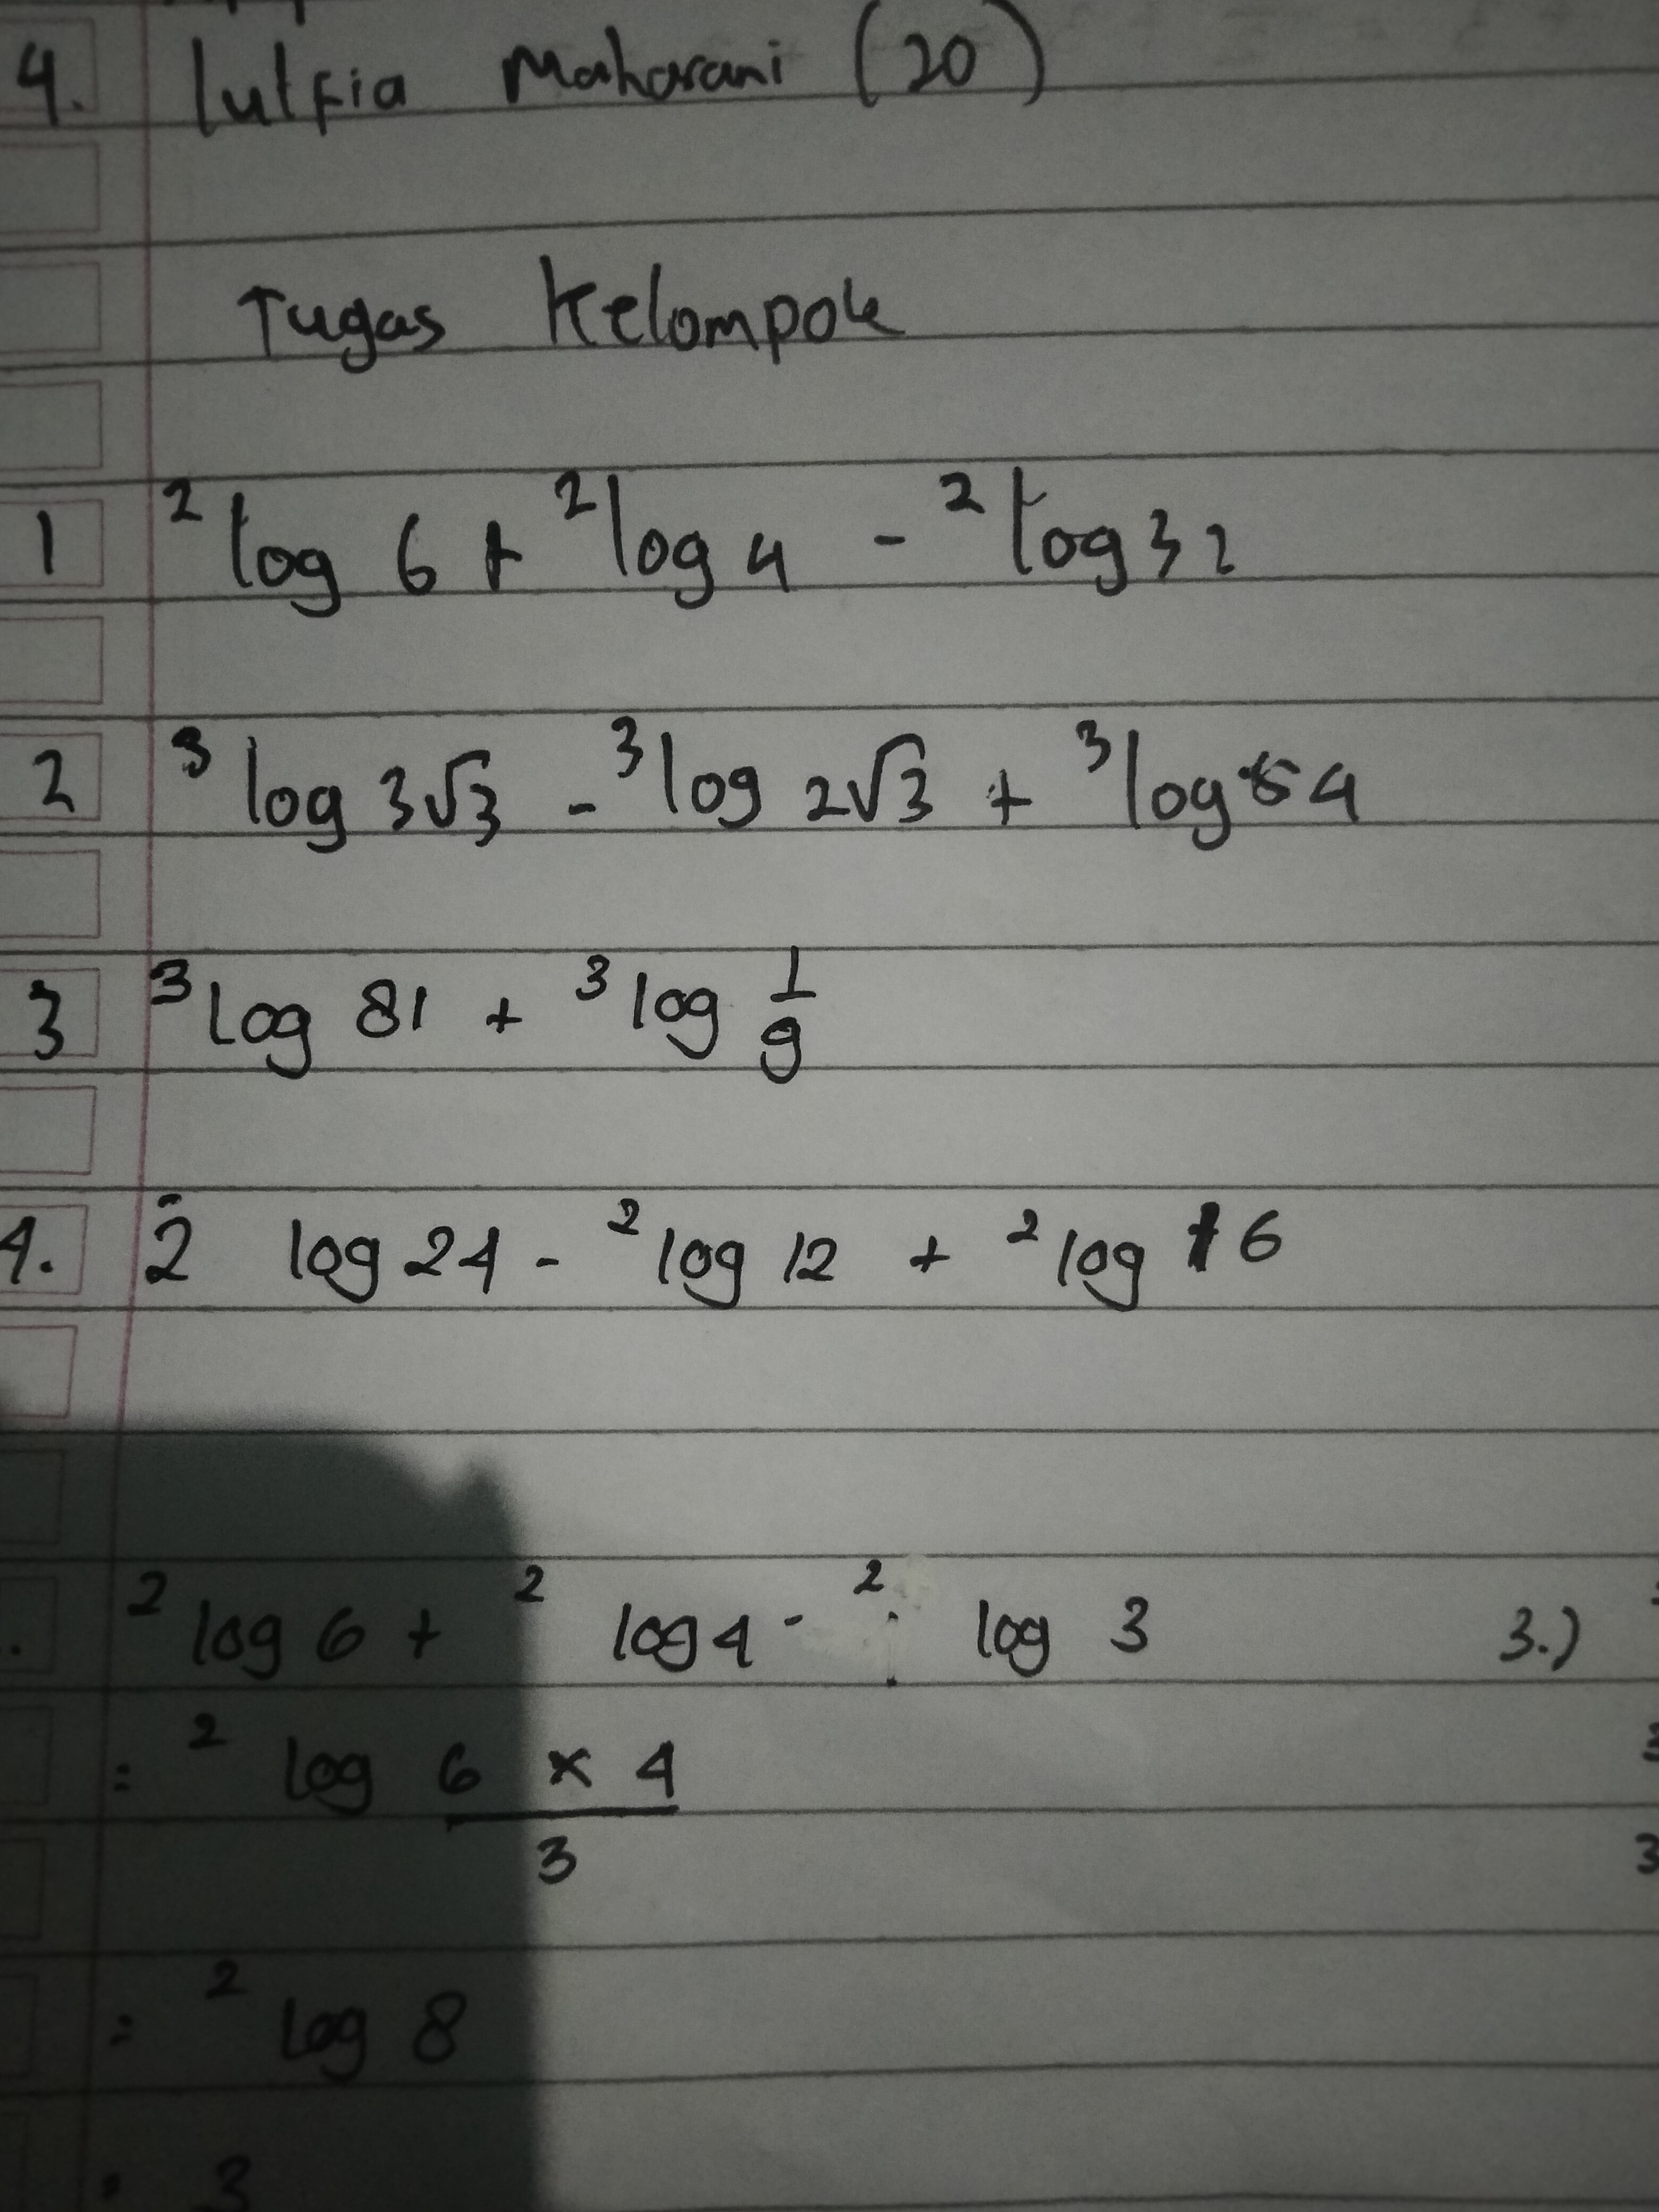 4. lutfia Maharani (20)
Tugas Kelompok
1 ²log 6 + ²log 4 - ²log 32
2 ³log 3√3 - ³log 2√3 + ³log 54
3 ³log 81 + ³log 1/9
4. 2 log 24 - ²log 12 + ²log 16
. ²log 6 + ²log 4 - ² log 3 3.)
= ²log 6 x 4 / 3
= ²log 8
= 3